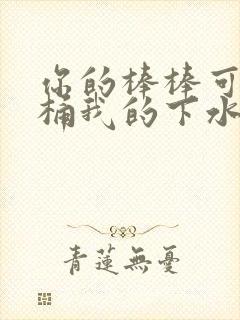 你的棒棒可
桶我的下水
青蓮無憂